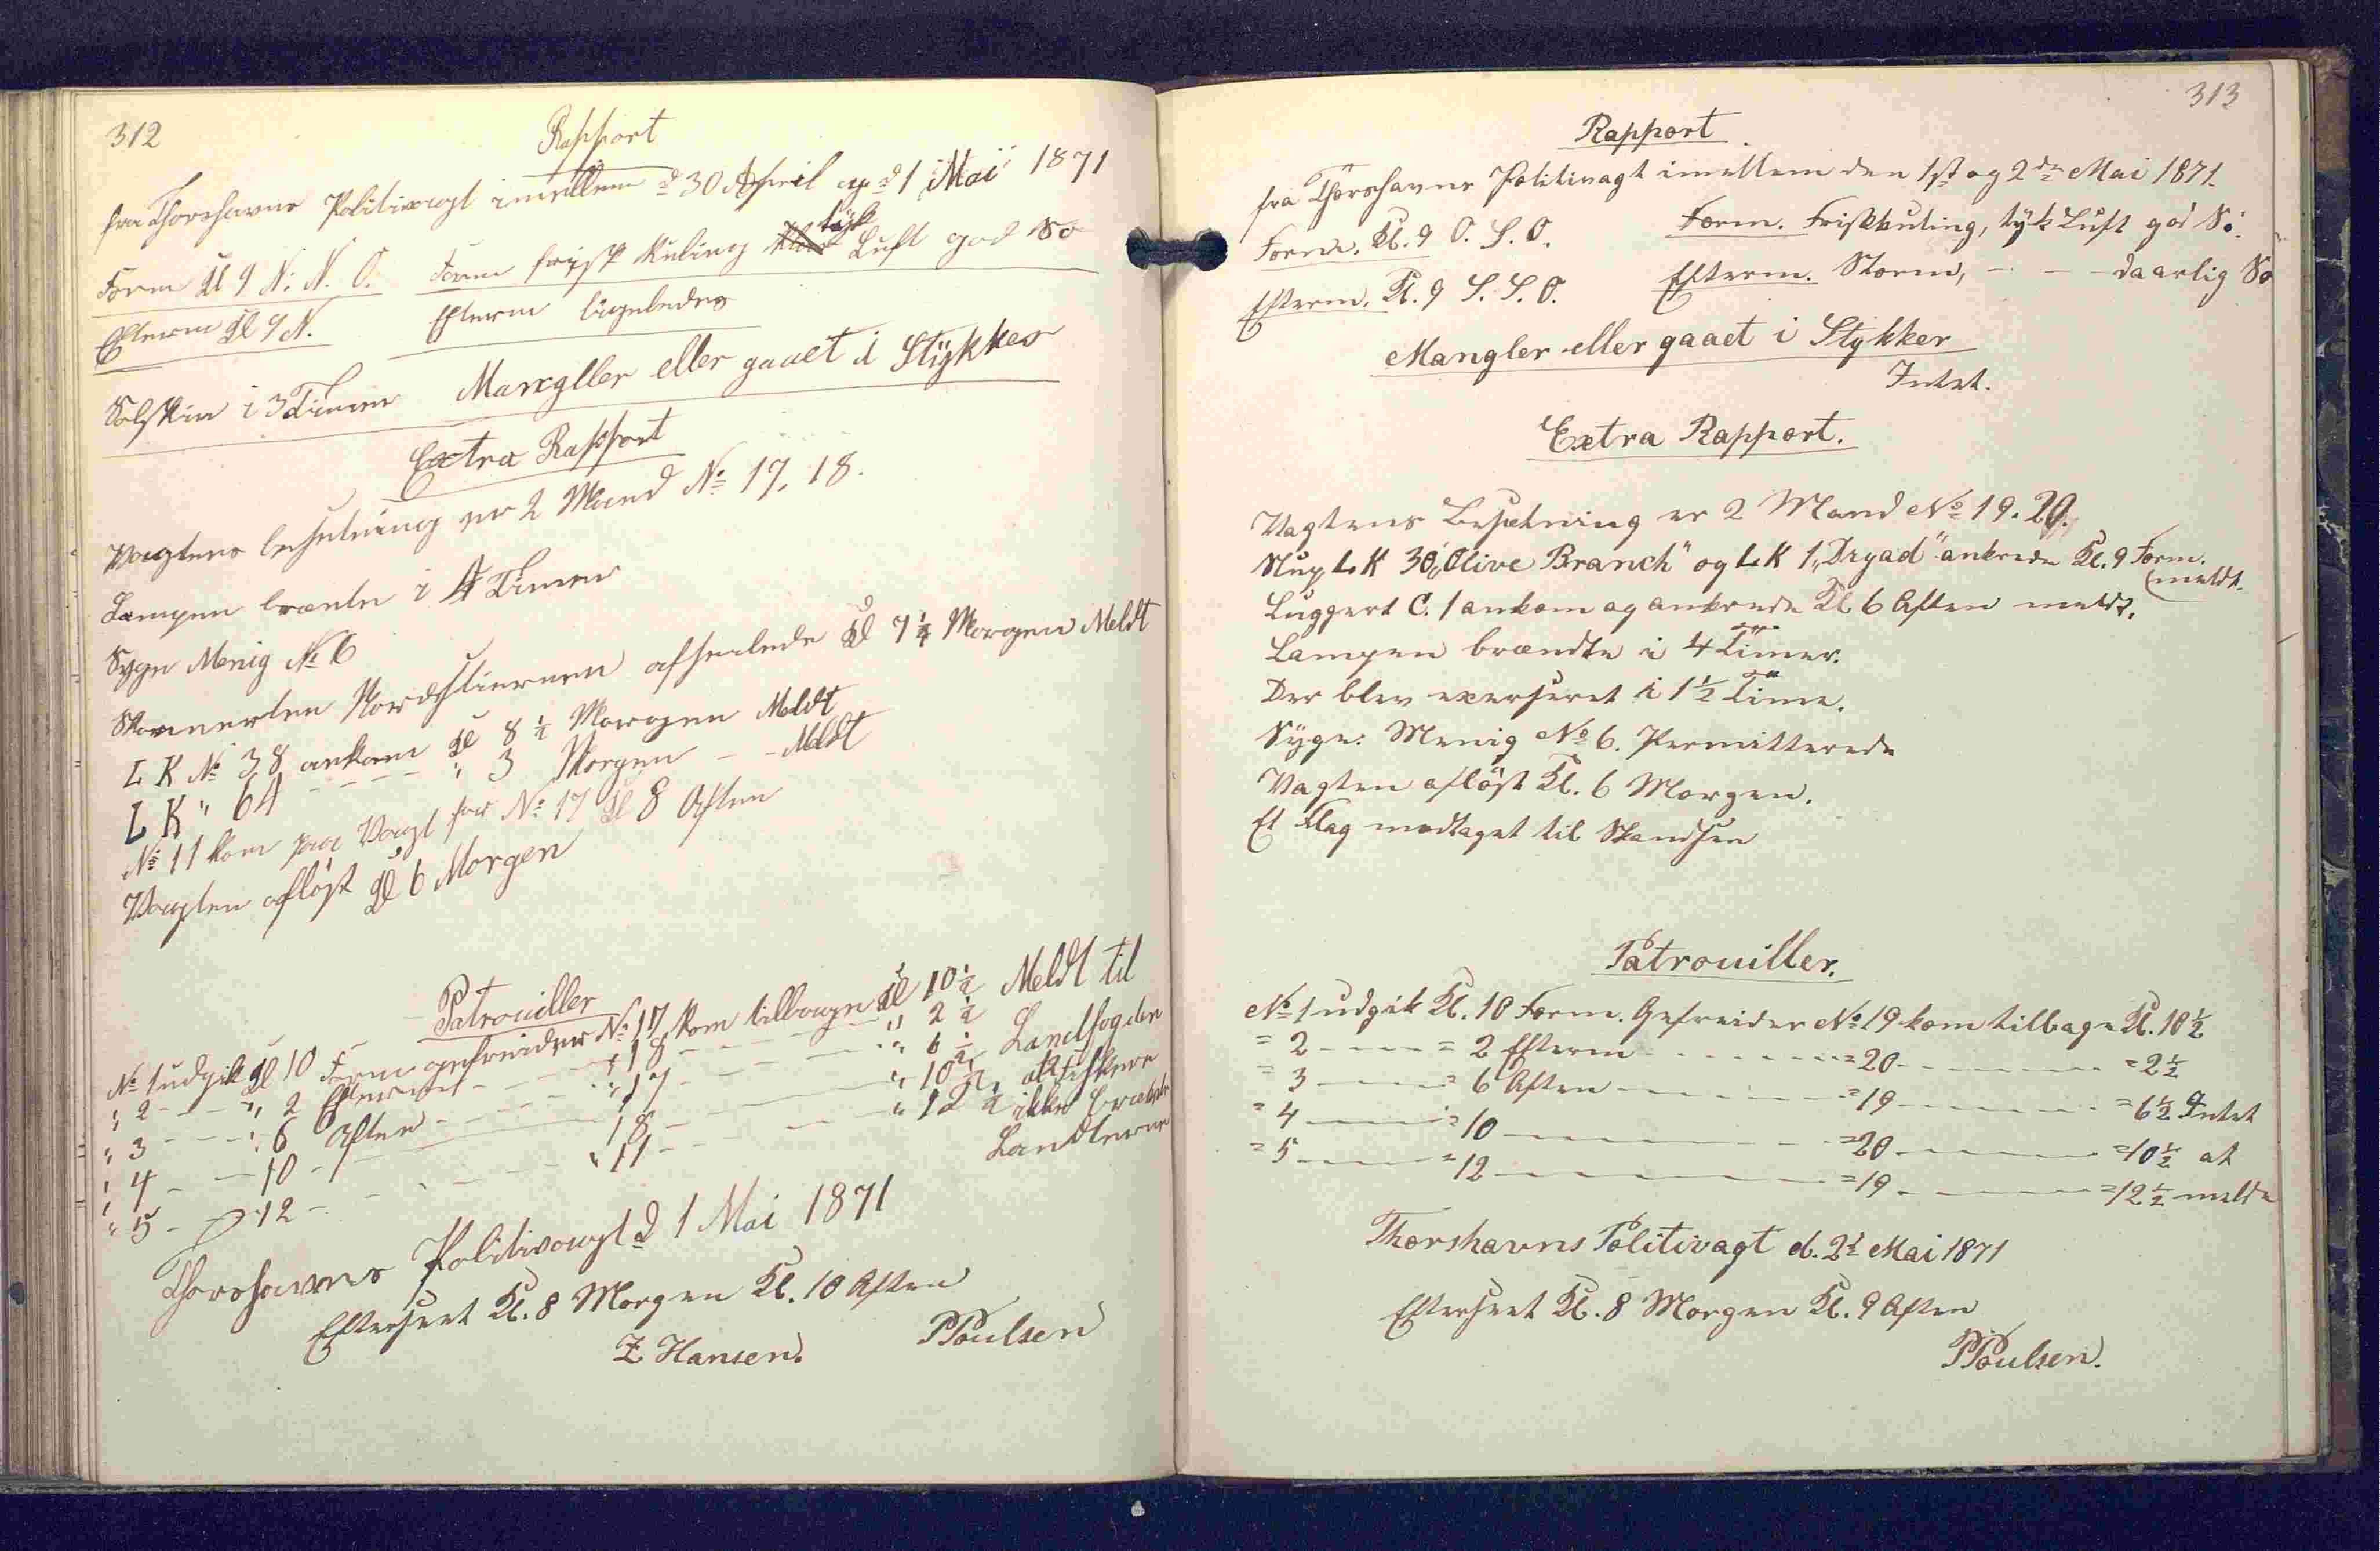 312
Rapport
fra Thorshavns Politivagt imellem d 30 April og d 1 Mai 1871
Form Kl 9 N. N. O. Form frisk Kuling tyk Luft god Sö
Efterm Kl 9 N. Efterm ligeledes
Solskin i 3 Timer Mangller eller gaaet i Stykker
Extra Rapport
Vagtens besetning er 2 Mand No 17. 18.
Lampen brænte i 4 Timer
Syge Menig No 6
Skonnerten Nordstiernen afseilede Kl 7 1/4 Morgen Meldt
L K No 38 ankom Kl 8 1/2 Morgen Meldt
L K " 64 - - - - " 3 Morgen - - Meldt
No 11 kom paa Vagt for No 17 Kl 8 Aften
Vagten aflöst Kl 6 Morgen
Patrouiller
No 1 udgik Kl 10 Form gefreider No 17 kom tilbage Kl 10 1/2 Meldt til
" 2 - - - " 2 Efterm - - - " 18 - - - " 2 1/2 Landfogden
" 3 - - - " 6 Aften - - - " 17 - - - " 6 1/2 at Fiskere
" 4 - - 10 - - - 18 - - - " 10 1/2 ikke
" 5 - - 12 - - - " 11 - - - " 12 1/2 Landterne
Thorshavns Politivagt d 1 Mai 1871
Efterseet Kl. 8 Morgen Kl. 10 Aften
Z Hansen. PPoulsen
313
Rapport
fra Thorshavns Politivagt imellem den 1ste og 2den Mai 1871.
Form. Kl. 9 O. S. O. Form. Friskkuling, tyk Luft god Sö.
Efterm. Kl. 9 S. S. O. Efterm. Storm, - - - daarlig Sö
Mangler eller gaaet i Stykker
Intet.
Extra Rapport.
Vagtens Besetning er 2 Mand No 19. 20.
Slup L K 30 "Olive Branch" og L K 1 "Dryad" ankrede Kl. 9 Form.
(meldt.
Luggert C. 1 ankom og ankrede Kl. 6 Aften meldt.
Lampen brændte i 4 Timer.
Der blev exerseret i 1 1/2 Time.
Syge: Menig No 6. Permitterede
Vagten aflöst Kl. 6 Morgen.
Et Flag modtaget til Skandsen
Patrouiller.
No 1 udgik Kl. 10 Form. Gefreider No 19 kom tilbage Kl. 10 1/2
= 2 - - - = 2 Efterm - - - = 20 - - - = 2 1/2
= 3 - - - = 6 Aften - - - = 19 - - - = 6 1/2 Intet
= 4 - - - = 10 - - - = 20 - - - = 10 1/2 at
= 5 - - - = 12 - - - = 19 - - - = 12 1/2 melde
Thorshavns Politivagt d. 2d Mai 1871
Efterseet Kl. 8 Morgen Kl. 9 Aften
PPoulsen.